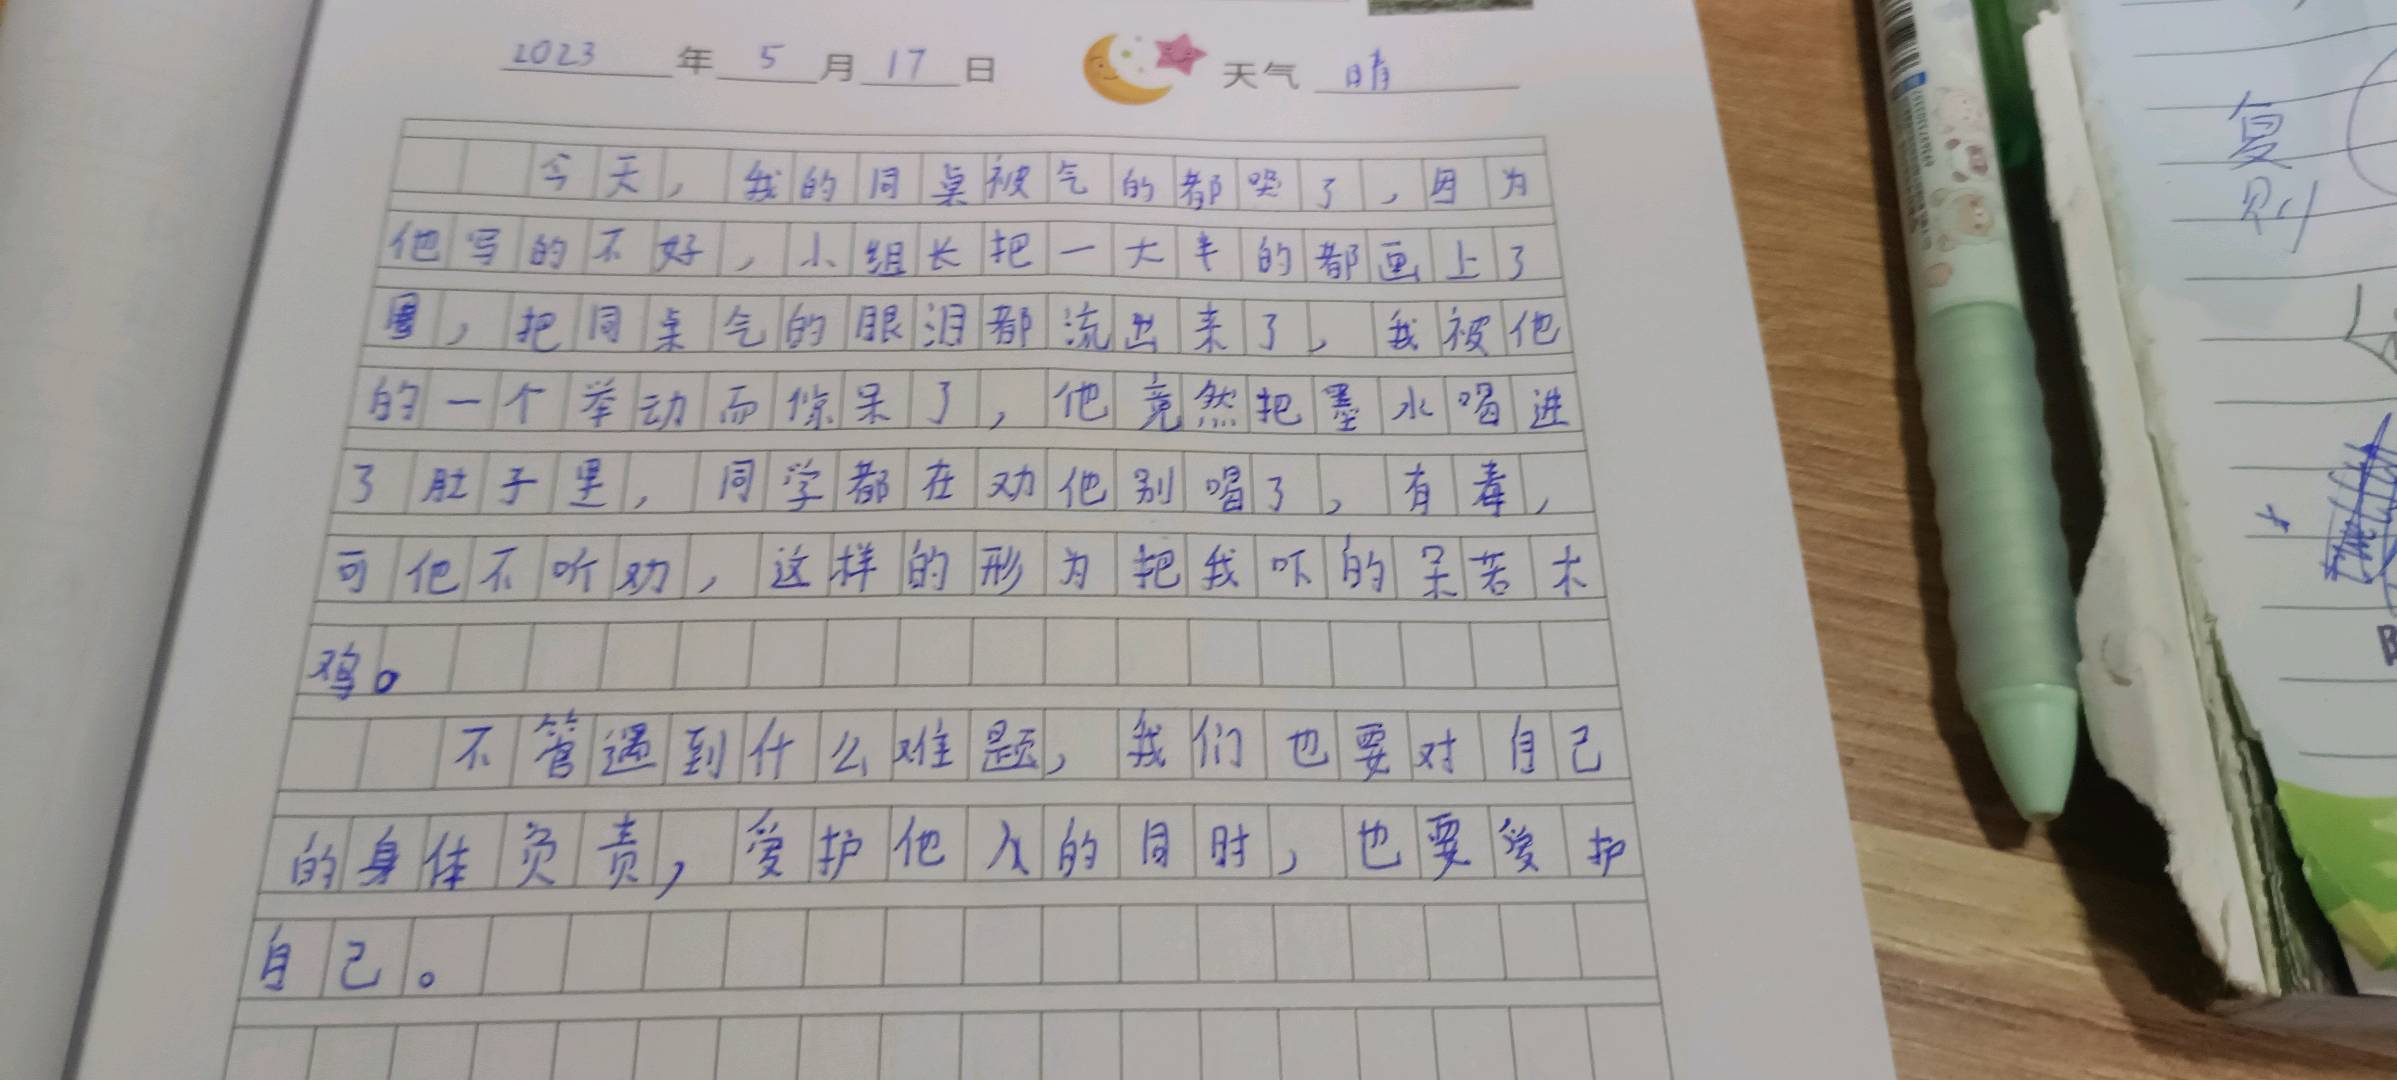 2023年5月17日 天气 晴
今天，我的同桌被气的都哭了，因为
他写的不好，小组长把一大半的都画上了
圈，把同桌气的眼泪都流出来了，我被他
的一个举动而惊呆了，他竟然把墨水喝进
了肚子里，同学都在劝他别喝了，有毒，
可他不听劝，这样的形为把我吓的呆若木
鸡。
不管遇到什么难题，我们也要对自己
的身体负责，爱护他人的同时，也要爱护
自己。
复
则